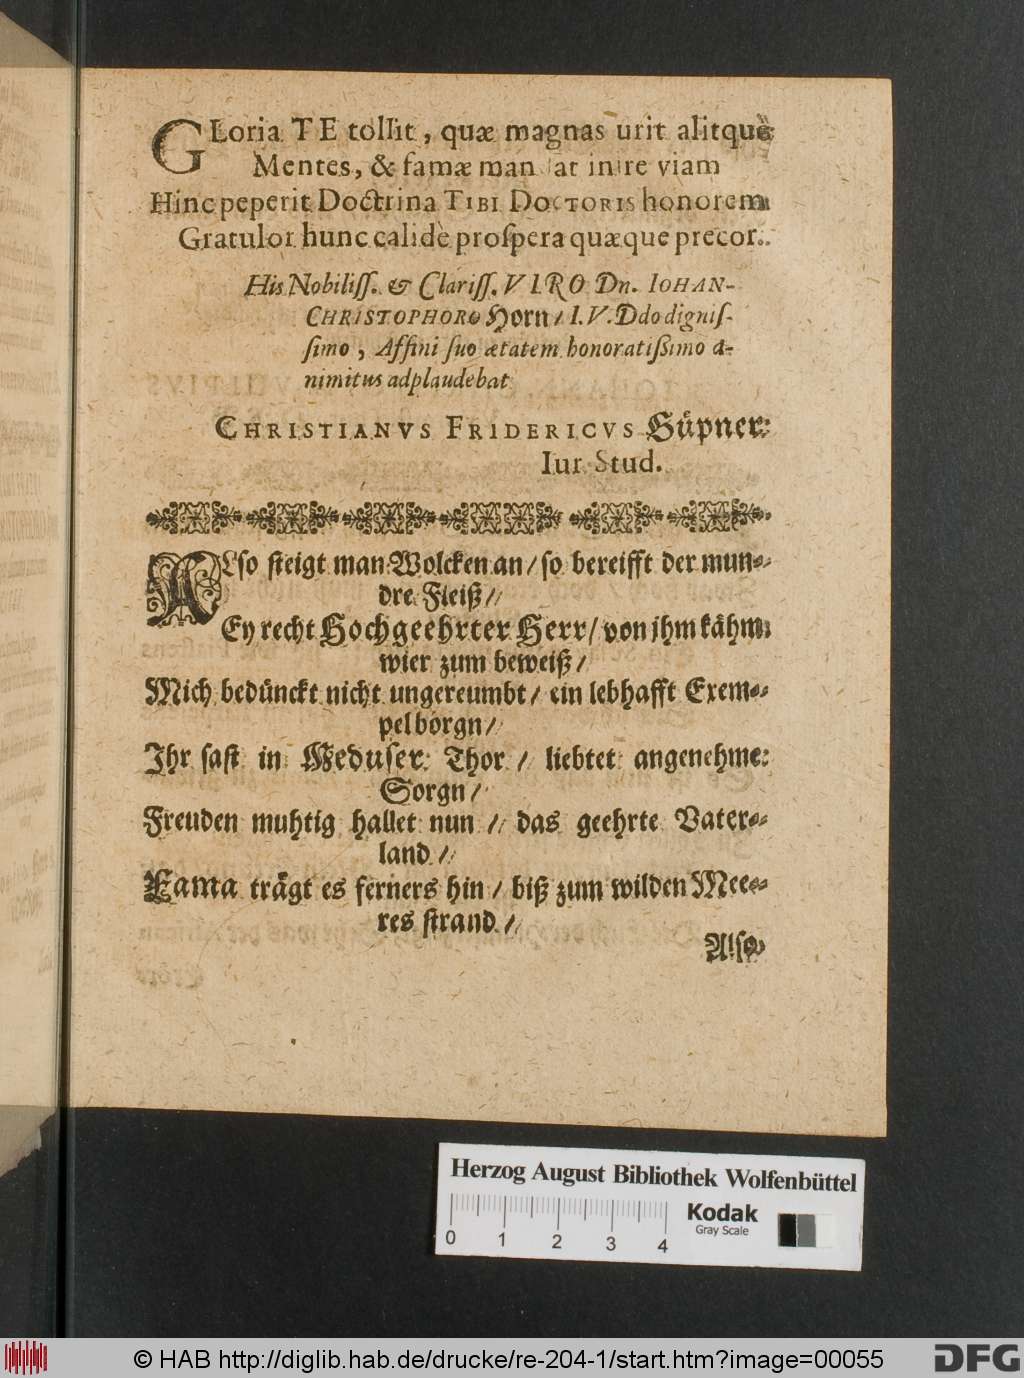 GLoria TE tollit, quæ magnas urit alitque
Mentes, & famæ mandat inire viam
Hinc peperit Doctrina TIBI DOCTORIS honorem
Gratulor hunc calidè prospera quæque precor.
His Nobiliss. & Clariss. VIRO Dn. IOHAN-
CHRISTOPHORO Horn / I. V. Ddo dignis-
simo, Affini suo ætatem honoratißimo a-
nimitus adplaudebat
CHRISTIANVS FRIDERICVS Hüpner.
Iur. Stud.
ALso steigt man Wolcken an / so bereifft der mun-
dre Fleiß /
Ey recht Hochgeehrter Herr / von jhm kähm
wier zum beweiß /
Mich bedünckt nicht ungereumbt / ein lebhafft Exem-
pel borgn /
Jhr sast in Meduser Thor / liebtet angenehme
Sorgn /
Freuden muhtig hallet nun / das geehrte Vater-
land /
Fama trägt es ferners hin / biß zum wilden Mee-
res strand /
Also
Herzog August Bibliothek Wolfenbüttel
Kodak
Gray Scale
0 1 2 3 4
© HAB http://diglib.hab.de/drucke/re-204-1/start.htm?image=00055
DFG